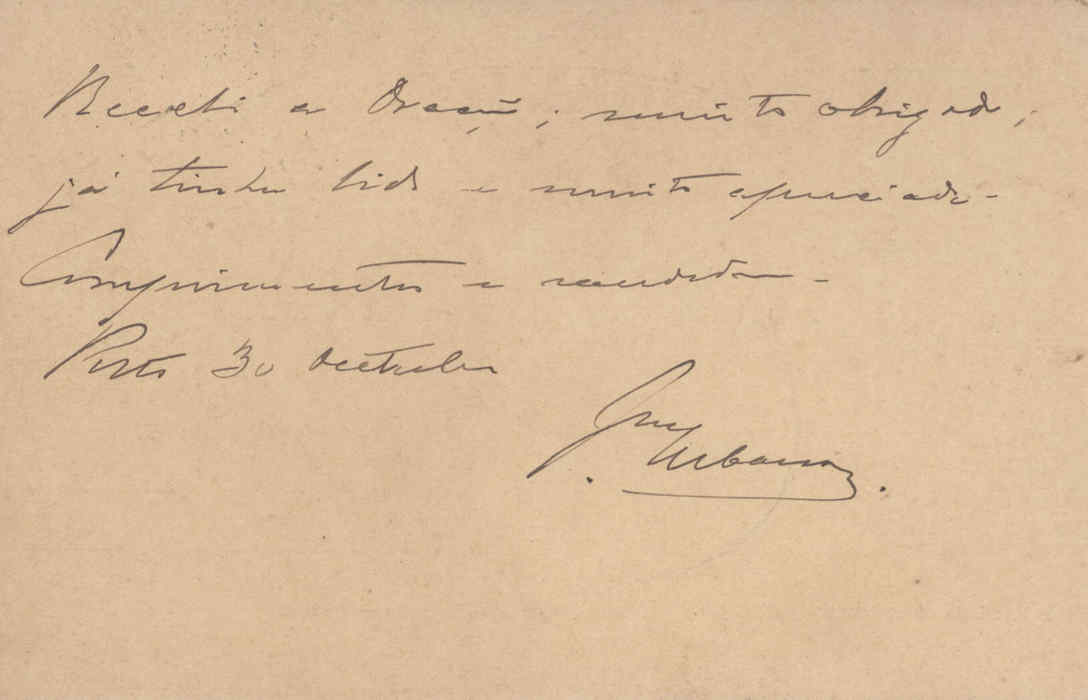 Recebi a Oração; muito obrigado;
já tinha lido e muito apreciado -
Comprimentos e saudades -
Porto 30 Outubro
Urbano